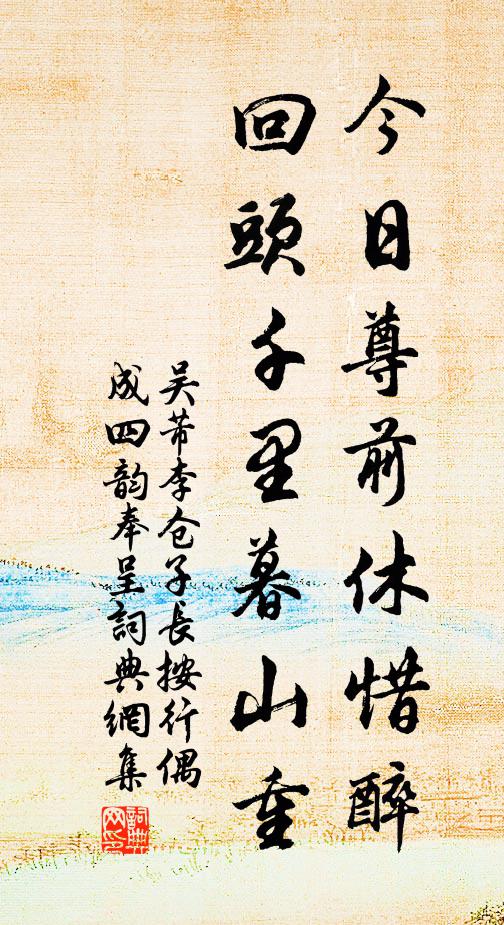 今日尊前休惜醉
回頭千里暮山重
吴芾李仓子長按行偶
成四韵奉呈詞典網集
詞典
网印